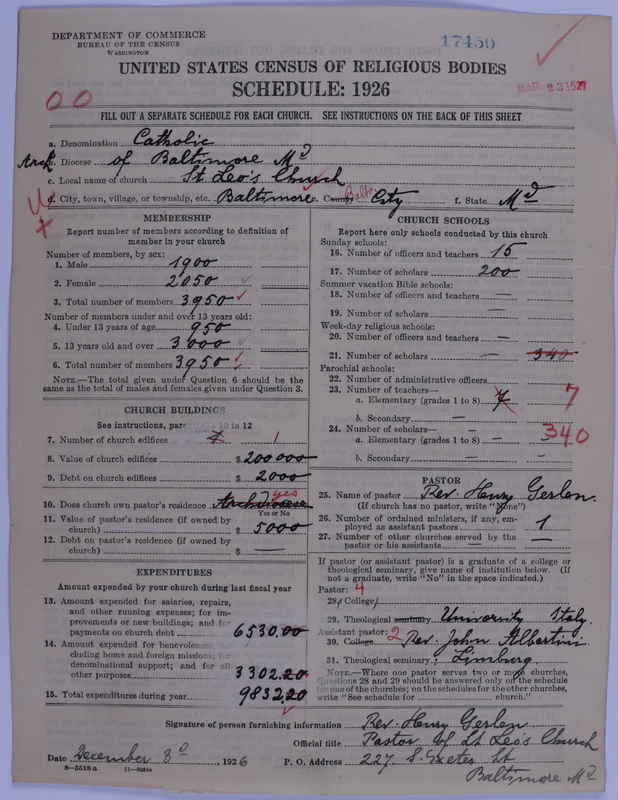 DEPARTMENT OF COMMERCE
BUREAU OF THE CENSUS
WASHINGTON
17450
MAR 23 1927
UNITED STATES CENSUS OF RELIGIOUS BODIES
SCHEDULE: 1926
00
FILL OUT A SEPARATE SCHEDULE FOR EACH CHURCH. SEE INSTRUCTIONS ON THE BACK OF THIS SHEET
a. Denomination Catholic
Arch b. Diocese of Baltimore Md
c. Local name of church St Leo's Church
d. City, town, village, or township, etc. Baltimore e. County Balto. City f. State Md
MEMBERSHIP
Report number of members according to definition of
member in your church
Number of members, by sex:
1. Male 1900
2. Female 2050
3. Total number of members 3950
Number of members under and over 13 years old:
4. Under 13 years of age 950
5. 13 years old and over 3000
6. Total number of members 3950
NOTE.—The total given under Question 6 should be the
same as the total of males and females given under Question 3.
CHURCH BUILDINGS
See instructions, par 10 to 12
7. Number of church edifices 1
8. Value of church edifices $ 200000
9. Debt on church edifices $ 2000
yes
10. Does church own pastor's residence Archdiocese
Yes or No
11. Value of pastor's residence (if owned by
church) $ 5000
12. Debt on pastor's residence (if owned by
church) $ —
EXPENDITURES
Amount expended by your church during last fiscal year
13. Amount expended for salaries, repairs,
and other running expenses; for im-
provements or new buildings; and for
payments on church debt 6530.00
14. Amount expended for benevolences, in-
cluding home and foreign missions; for
denominational support; and for all
other purposes 3302.20
15. Total expenditures during year 9832.20
CHURCH SCHOOLS
Report here only schools conducted by this church
Sunday schools:
16. Number of officers and teachers 15
17. Number of scholars 200
Summer vacation Bible schools:
18. Number of officers and teachers —
19. Number of scholars —
Week-day religious schools:
20. Number of officers and teachers —
21. Number of scholars — 340
Parochial schools:
22. Number of administrative officers
23. Number of teachers—
a. Elementary (grades 1 to 8) 7 7
b. Secondary —
24. Number of scholars—
a. Elementary (grades 1 to 8) — 340
b. Secondary — -
PASTOR
25. Name of pastor Rev. Henry Gerlen.
(If church has no pastor, write "None")
26. Number of ordained ministers, if any, em-
ployed as assistant pastors 1
27. Number of other churches served by the
pastor or his assistants —
If pastor (or assistant pastor) is a graduate of a college or
theological seminary, give name of institution below. (If
not a graduate, write "No" in the space indicated.)
Pastor: 4
28. College
29. Theological seminary University Italy.
Assistant pastor: 2
30. College Rev. John Albertini
31. Theological seminary Limburg.
NOTE.—Where one pastor serves two or more churches,
Questions 28 and 29 should be answered only on the schedule
for one of the churches; on the schedules for the other churches,
write "See schedule for church."
Signature of person furnishing information Rev. Henry Gerlen
Official title Pastor of St Leo's Church
Date December 3d, 1926 P. O. Address 227 S. Exeter St
Baltimore Md
8—5518a 11—9351